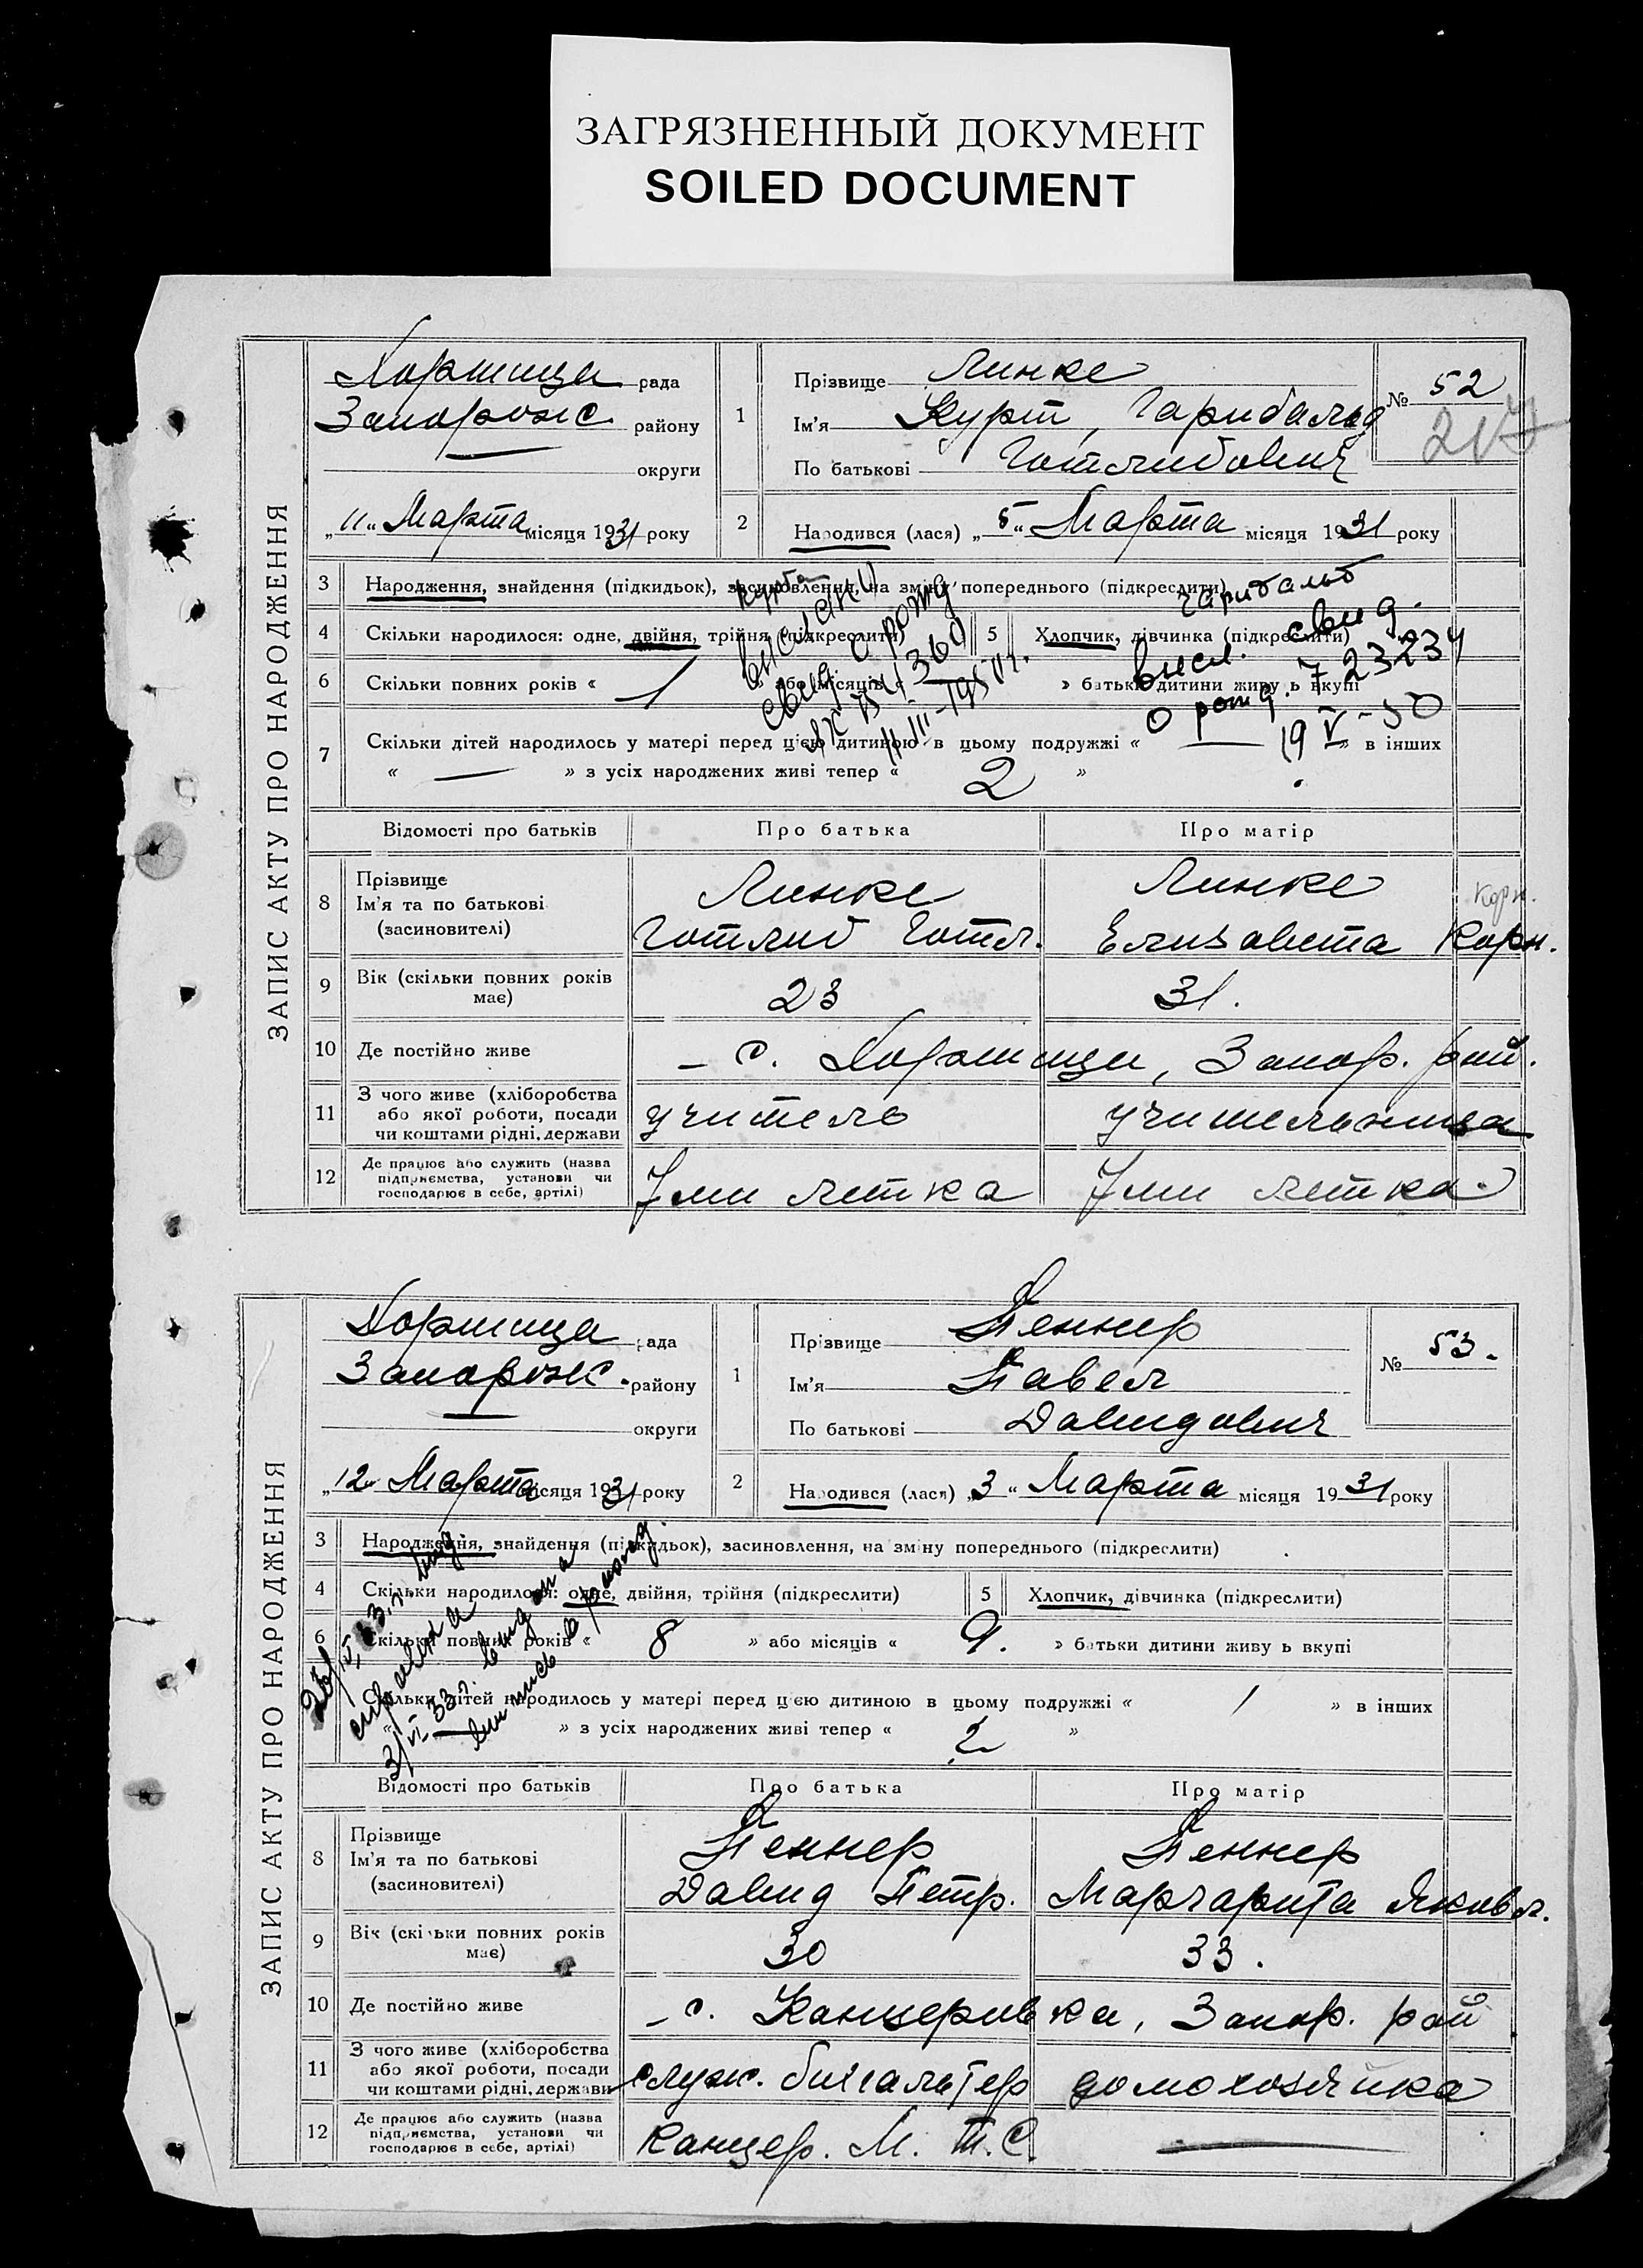 ЗАГРЯЗНЕННЫЙ ДОКУМЕНТ
SOILED DOCUMENT
ЗАПИС АКТУ ПРО НАРОДЖЕННЯ
Хортица рада
Запорож. району
округи
„11„ Марта місяця 1931 року
1
Прізвище Линке
Ім'я Курт, Гарибальд
По батькові Готлибович
№ 52
217
2
Народився (лася) „5„ Марта місяця 1931 року
3 Народження, знайдення (підкидьок), засиновлення, на зміну попереднього (підкреслити)
4 Скільки народилося: одне, двійня, трійня (підкреслити)
5 Хлопчик, дівчинка (підкреслити)
6 Скільки повних років « 1 » або місяців « — » батьки дитини живу ь вкупі
7 Скільки дітей народилось у матері перед цією дитиною в цьому подружжі « — » в інших
« — » з усіх народжених живі тепер « 2 »
Курта
свид. о рожд
11 III-195
Гарибальд
высл. свид.
о рожд. 723234
19 V-50
Відомості про батьків Про батька Про матір
8 Прізвище
Ім'я та по батькові
(засиновителі)
Линке
Готлиб Готл.
Линке
Елизавета Корн.
Корн.
9 Вік (скільки повних років
має)
23
31.
10 Де постійно живе
с. Хортици, Запор. рай.
11 З чого живе (хліборобства
або якої роботи, посади
чи коштами рідні, держави
учитель
учительница
12 Де працює або служить (назва
підприємства, установи чи
господарює в себе, артілі)
7ми летка
7ми летка.
ЗАПИС АКТУ ПРО НАРОДЖЕННЯ
Хортица рада
Запорож. району
округи
„12„ Марта місяця 1931 року
1
Прізвище Пеннер
Ім'я Павел
По батькові Давидович
№ 53.
2
Народився (лася) „3„ Марта місяця 1931 року
3 Народження, знайдення (підкидьок), засиновлення, на зміну попереднього (підкреслити)
4 Скільки народилося: одне, двійня, трійня (підкреслити)
5 Хлопчик, дівчинка (підкреслити)
6 Скільки повних років « 8 » або місяців « 9. » батьки дитини живу ь вкупі
7 Скільки дітей народилось у матері перед цією дитиною в цьому подружжі « 1 » в інших
« — » з усіх народжених живі тепер « 2 »
справка
3/VI 33 г. выдана
выпись о рожд.
Відомості про батьків Про батька Про матір
8 Прізвище
Ім'я та по батькові
(засиновителі)
Пеннер
Давид Петр.
Пеннер
Маргарита Яковл.
9 Вік (скільки повних років
має)
30
33.
10 Де постійно живе
с. Канцеривка, Запор. рай
11 З чого живе (хліборобства
або якої роботи, посади
чи коштами рідні, держави
служ. бухгальтер
домохозяйка
12 Де працює або служить (назва
підприємства, установи чи
господарює в себе, артілі)
Канцер. М. Т. С.